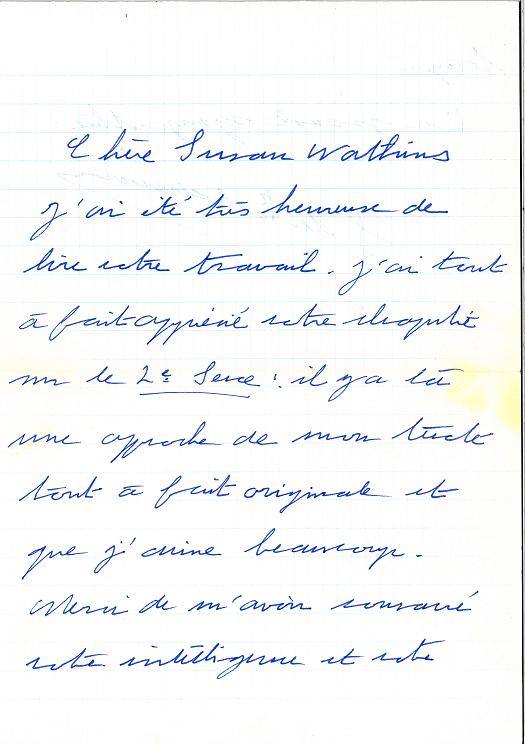 Chère Susan Watkins
J'ai été très heureuse de
lire votre travail. J'ai tout
à fait apprécié votre chapitre
sur le 2e Sexe : il y a là
une approche de mon texte
tout à fait originale et
que j'aime beaucoup.
Merci de m'avoir consacré
votre intelligence et votre